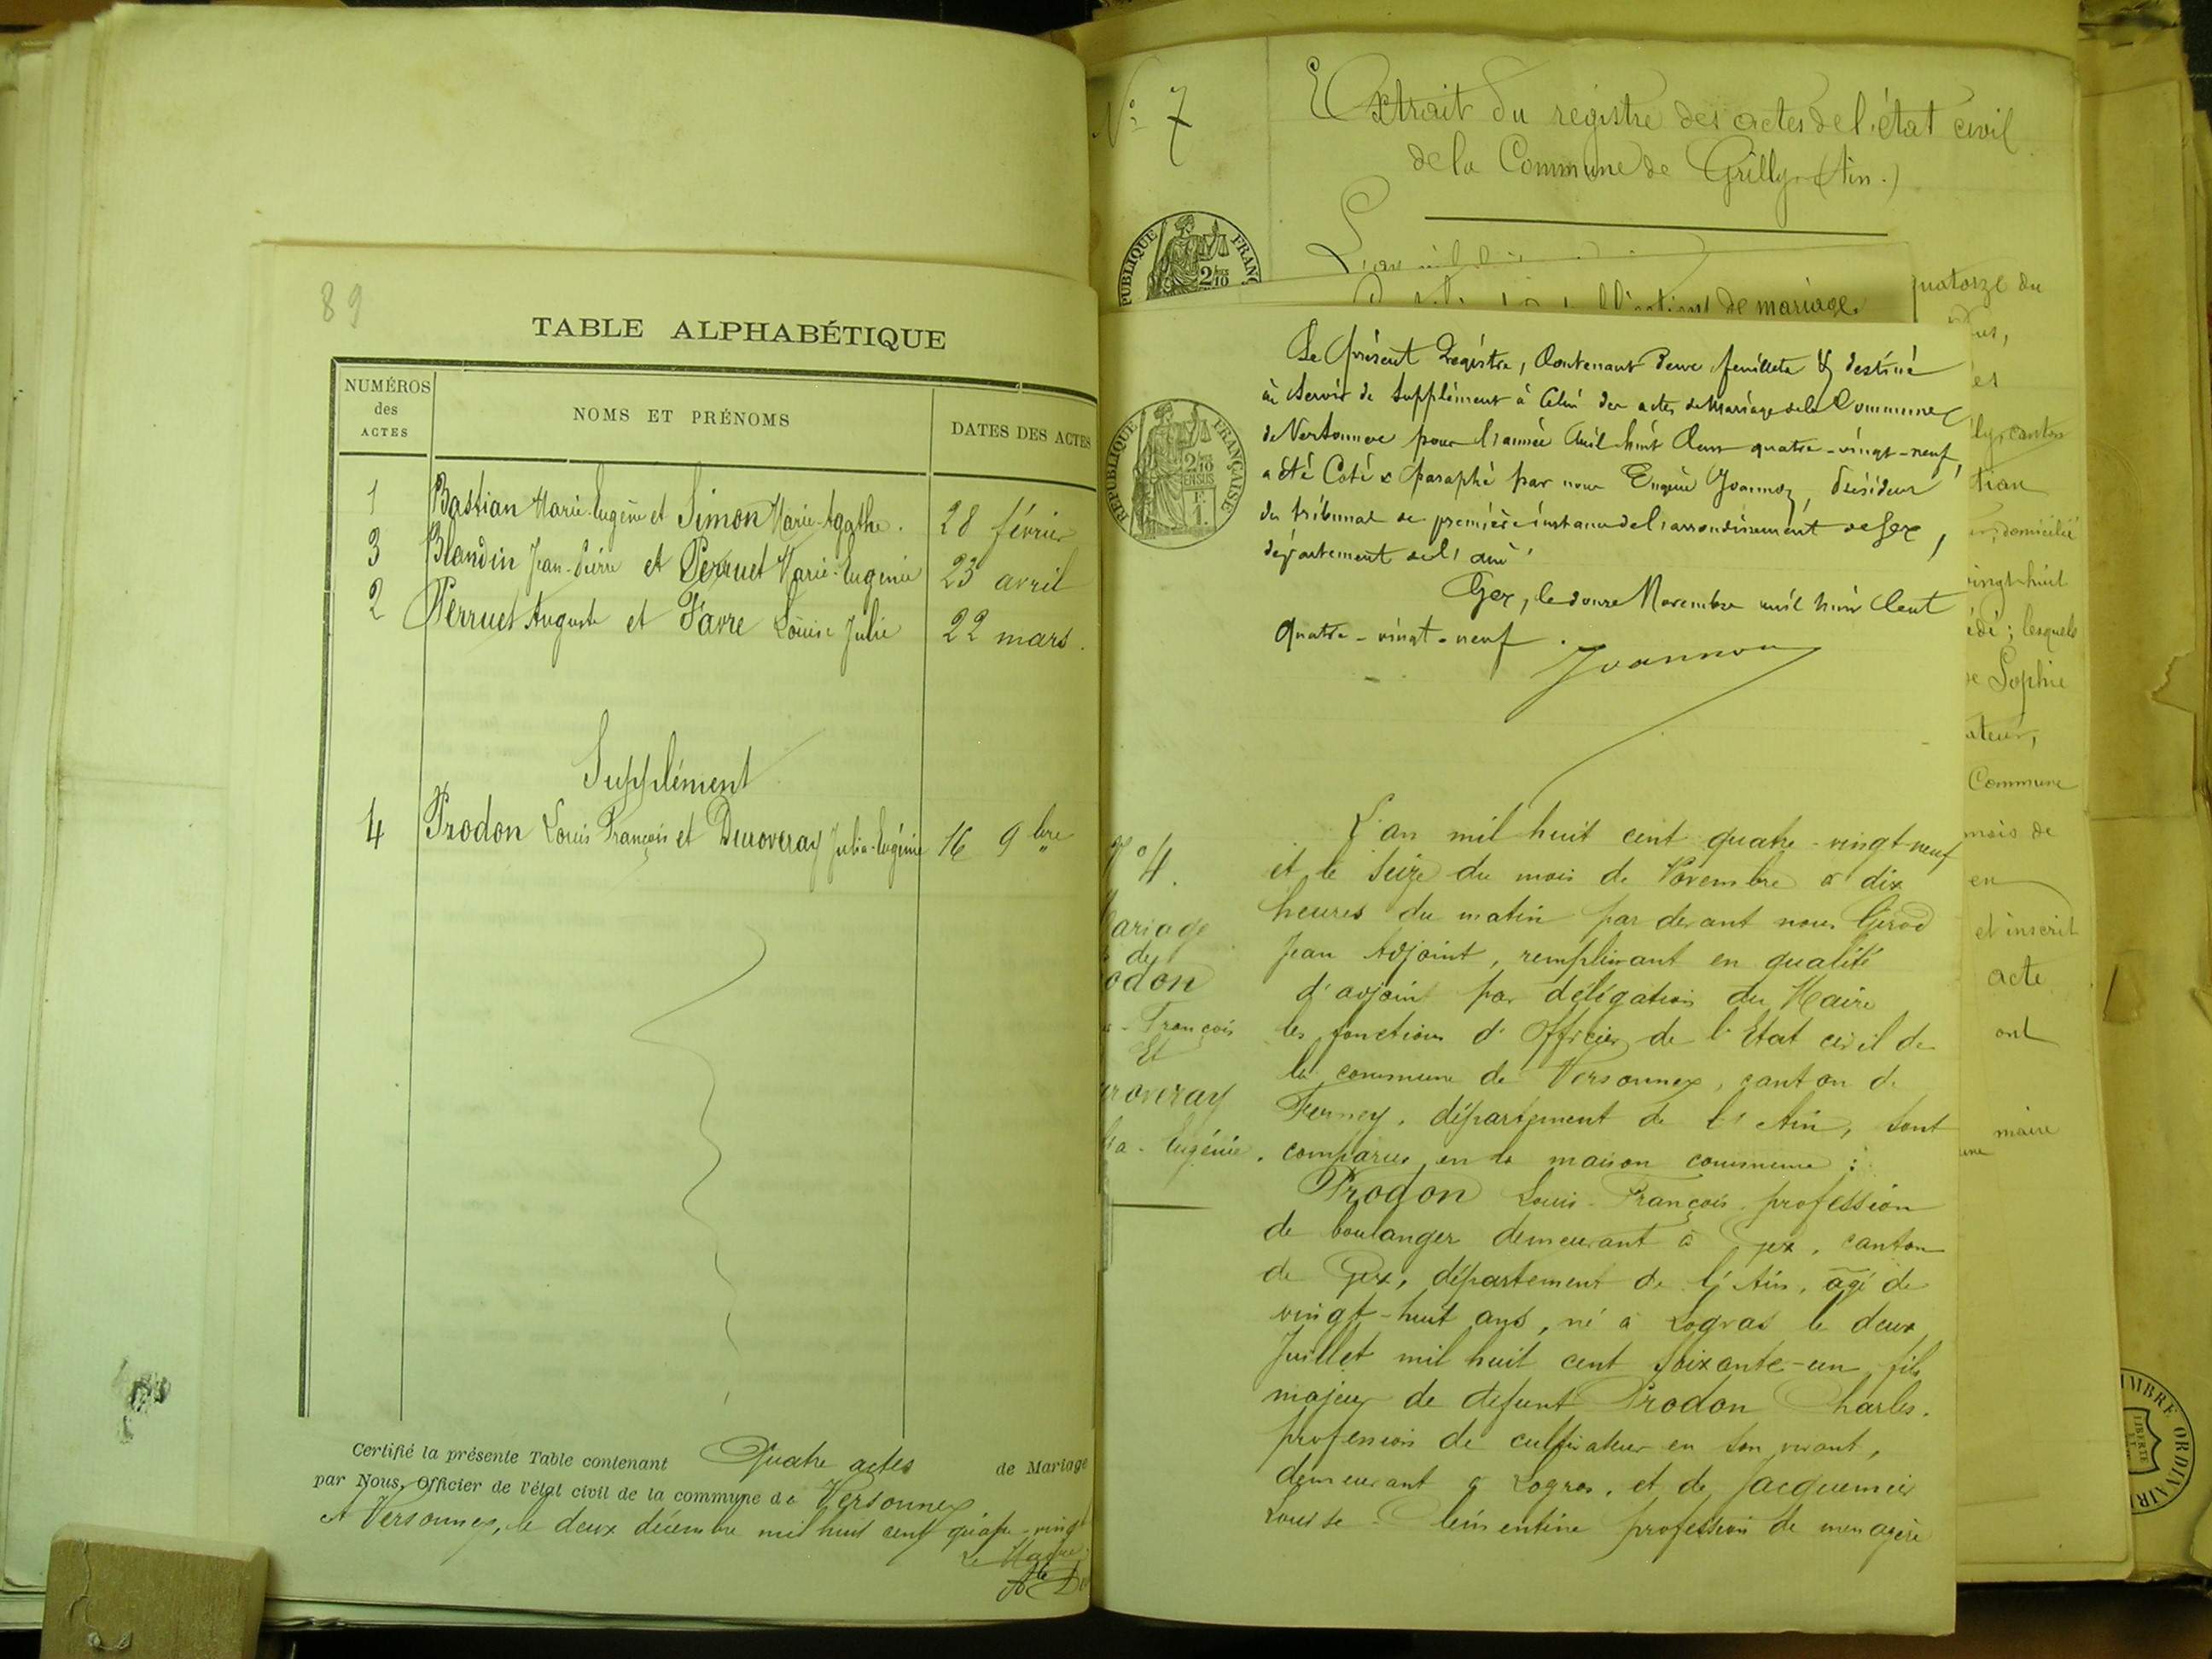 89
TABLE ALPHABÉTIQUE
NUMÉROS
des
ACTES
NOMS ET PRÉNOMS
DATES DES ACTES
1 Bastian Marie-Eugène et Simon Marie-Agathe. 28 février
3 Blandin Jean-Pierre et Perruet Marie-Eugénie 23 avril
2 Perruet Auguste et Favre Louise Julie 22 mars.
Supplément
4 Prodon Louis François et Duroveray Julia-Eugénie 16 9bre
Certifié la présente Table contenant Quatre actes de Mariage
par Nous, Officier de l'état civil de la commune de Versonnex.
A Versonnex, le deux décembre mil huit cent quatre-vingt
Le Maire
N° 7
Extrait du registre des actes de l'état civil
de la Commune de Grilly (Ain.)
RÉPUBLIQUE FRANÇAISE
2/10
de mariage.
quatorze du
Le présent Registre, Contenant deux feuillets & destiné
à Servir de Supplément à Celui des actes de Mariage de la Commune
de Versonnex pour l'année Mil huit Cent quatre-vingt-neuf,
a été Coté & paraphé par nous Eugène Yvannoz, Président
du tribunal de première instance de l'arrondissement de Gex,
département de l'Ain.
Gex, le douze Novembre mil huit Cent
quatre-vingt-neuf.
RÉPUBLIQUE FRANÇAISE
2/10
EN SUS
F.
1.
canton
domicilié
vingt-huit
; lesquels
Sophie
Commune
mois de
en
et inscrit
acte
ont
maire
N° 4.
Mariage
de
odon
- François
Et
roveray
- Eugénie.
L'an mil huit cent quatre-vingt-neuf
et le Seize du mois de Novembre à dix
heures du matin par devant nous Girod
Jean Adjoint, remplissant en qualité
d'adjoint par délégation du Maire
les fonctions d'Officier de l'Etat civil de
la commune de Versonnex, canton de
Ferney, département de l'Ain, sont
comparus en la maison commune :
Prodon Louis-François profession
de boulanger demeurant à Gex, canton
de Gex, département de l'Ain, âgé de
vingt-huit ans, né à Logras le deux
Juillet mil huit cent soixante-un fils
majeur de défunt Prodon Charles.
profession de cultivateur en son vivant,
demeurant à Logras, et de Jacquemier
Louise-Clémentine profession de menagère
TIMBRE ORDINAIRE